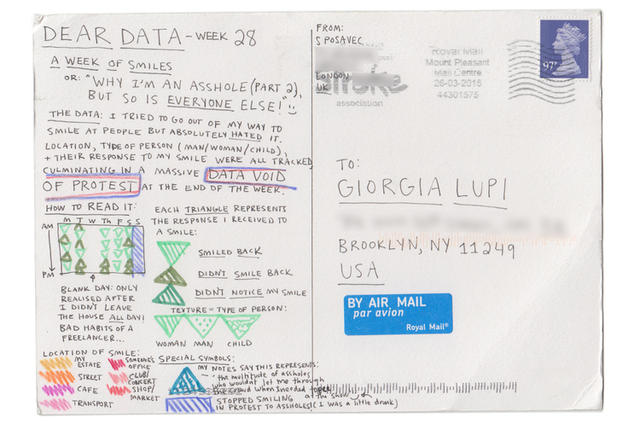 DEAR DATA - WEEK 28
A WEEK OF SMILES
OR: "WHY I'M AN ASSHOLE (PART 2),
BUT SO IS EVERYONE ELSE!"
THE DATA: I TRIED TO GO OUT OF MY WAY TO
SMILE AT PEOPLE BUT ABSOLUTELY HATED IT.
LOCATION, TYPE OF PERSON (MAN/WOMAN/CHILD),
+ THEIR RESPONSE TO MY SMILE WERE ALL TRACKED,
CULMINATING IN A MASSIVE DATA VOID
OF PROTEST AT THE END OF THE WEEK.
HOW TO READ IT:
M T W Th F S S
AM
PM
BLANK DAY: ONLY
REALISED AFTER
I DIDN'T LEAVE
THE HOUSE ALL DAY!
BAD HABITS OF A
FREELANCER...
EACH TRIANGLE REPRESENTS
THE RESPONSE I RECEIVED TO
A SMILE:
SMILED BACK
DIDN'T SMILE BACK
DIDN'T NOTICE MY SMILE
TEXTURE = TYPE OF PERSON:
WOMAN MAN CHILD
LOCATION OF SMILE:
MY ESTATE
STREET
CAFE
TRANSPORT
SOMEONE'S OFFICE
CLUB/CONCERT
SHOP/MARKET
SPECIAL SYMBOLS:
MY NOTES SAY THIS REPRESENTS:
- the multitude of assholes
who wouldn't let me through
the crowd when I needed to
at the show
(I was a little drunk)
STOPPED SMILING
IN PROTEST TO ASSHOLES!
FROM:
S POSAVEC
LONDON
UK
stroke
association
Royal Mail
Mount Pleasant
Mail Centre
26-03-2015
44301575
97P
TO:
GIORGIA LUPI
BROOKLYN, NY 11249
USA
BY AIR MAIL
par avion
Royal Mail®